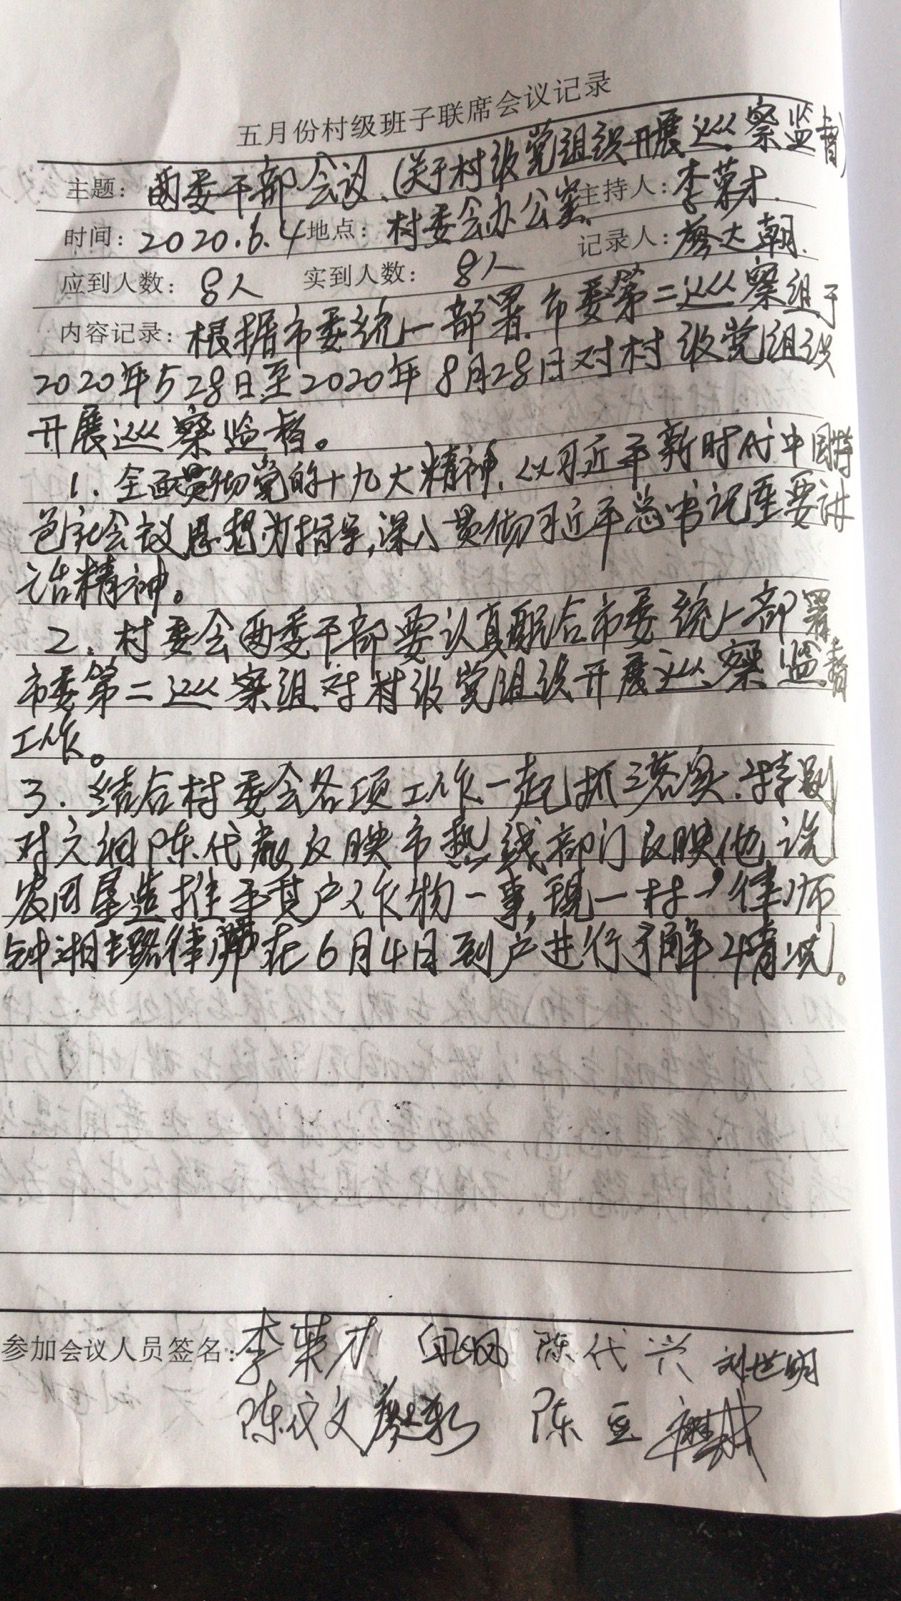 五月份村级班子联席会议记录
主题：两委干部会议.(关于村级党组织开展巡察监督) 主持人：李荣才.
时间：2020.6.4 地点：村委会办公室. 记录人：廖大朝.
应到人数：8人 实到人数：8人
内容记录：根据市委统一部署.市委第二巡察组于
2020年528日至2020年8月28日对村级党组织
开展巡察监督。
1.全面贯彻党的十九大精神.以习近平新时代中国特
色社会议思想为指导,深入贯彻习近平总书记重要讲
话精神。
2.村委会两委干部要认真配合市委统一部署
市委第二巡察组对村级党组织开展巡察监督
工作。
3.结合村委会各项工作一起抓落实.特别
对六组陈代 反映市热线部门反映他说
农田 造 其户作物一事,现一村一律师
钟湘 律师在6月4日到户进行了解情况。
参加会议人员签名：李荣才 陈代兴 刘世明
陈仪文 陈豆